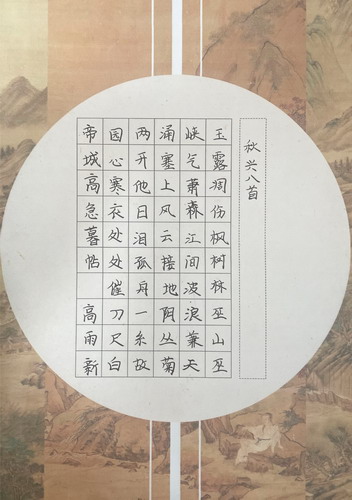 秋兴八首
玉露凋伤枫树林巫山巫
峡气萧森江间波浪兼天
涌塞上风云接地阴丛菊
两开他日泪孤舟一系故
园心寒衣处处催刀尺白
帝城高急暮帖 高雨新